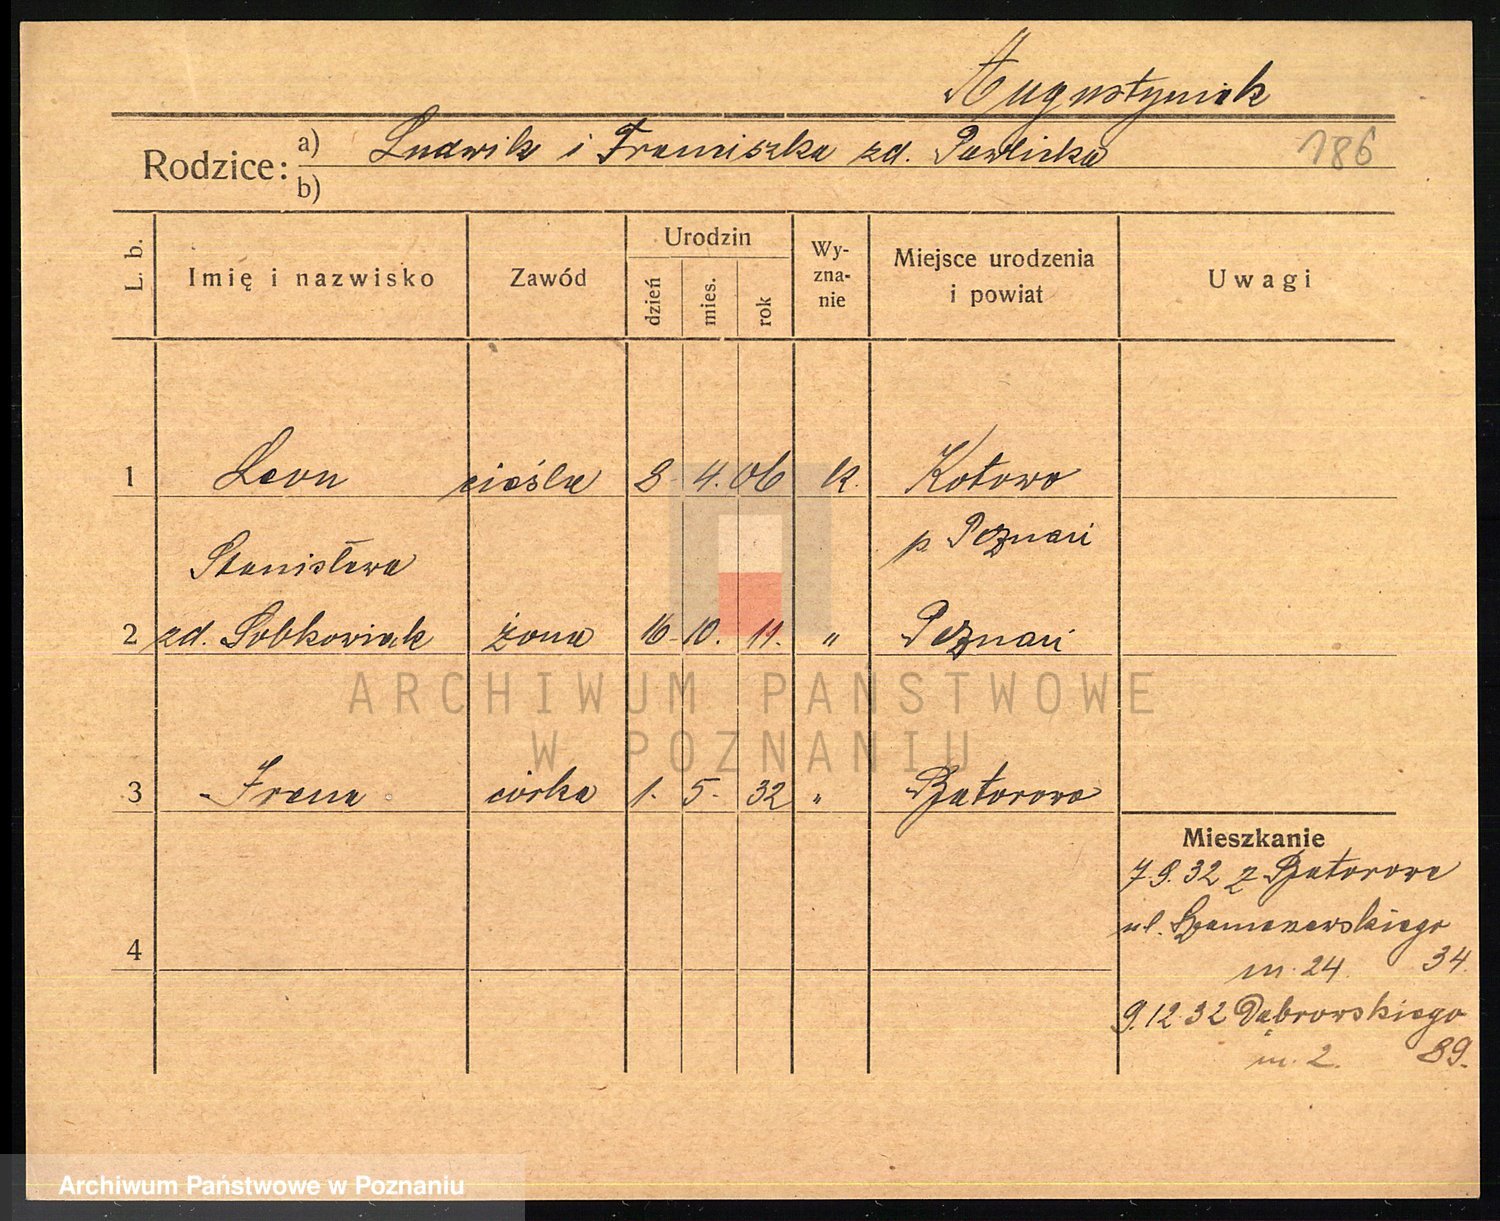 Augustyniak
Rodzice: a) Ludwik i Franciszka zd. Pawlicka 186
b)
L. b. Imię i nazwisko Zawód Urodzin dzień mies. rok Wy-zna-nie Miejsce urodzenia i powiat Uwagi
1 Leon cieśla 8 4. 06 k. Kotowo
p Poznań
Stanisława
2 zd. Sobkowiak żona 16. 10. 11. " Poznań
3 Irena córka 1. 5. 32 " Batorowo
Mieszkanie
7.9.32 z Batorowa
ul. Szamarzewskiego
m. 24. 34.
4
9.12.32 Dąbrowskiego
m. 2. 89.
ARCHIWUM PAŃSTWOWE
W POZNANIU
Archiwum Państwowe w Poznaniu